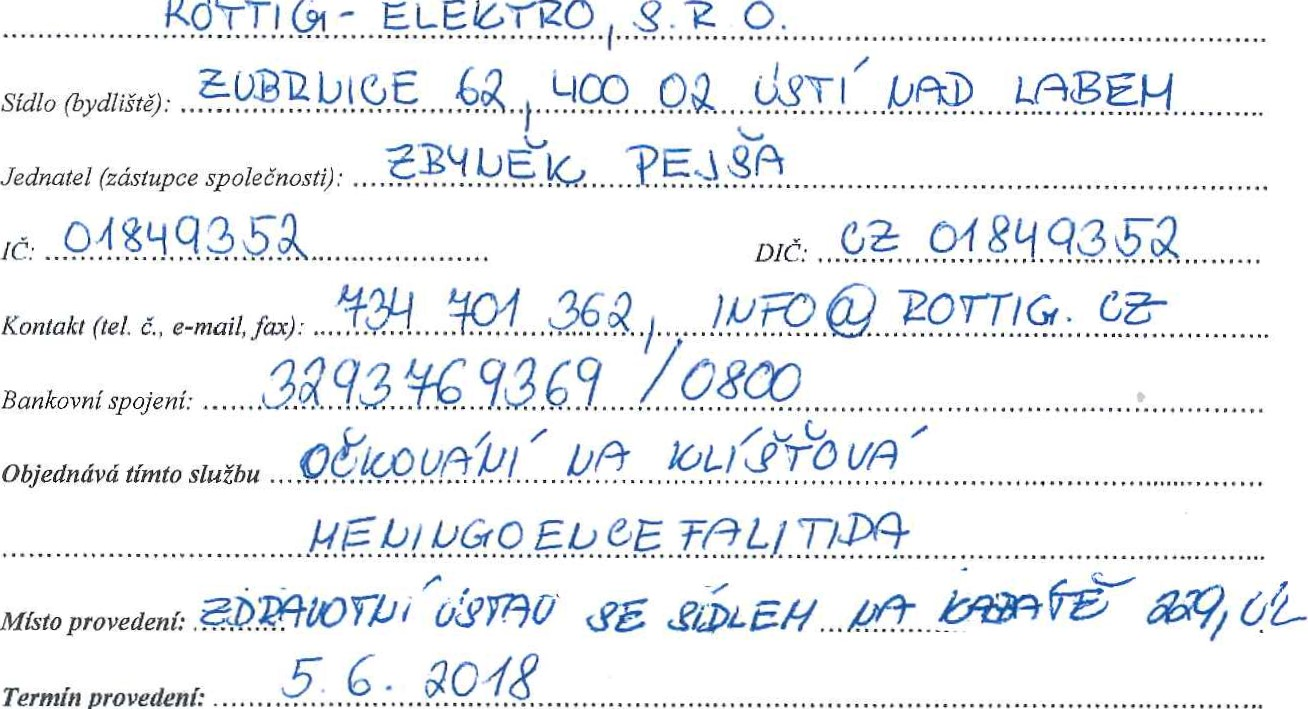 ROTTIG - ELEKTRO, S.R.O.
Sídlo (bydliště): ZUBRNICE 62, 400 02 ÚSTÍ NAD LABEM
Jednatel (zástupce společnosti): ZBYNĚK PEJŠA
IČ: 01849352 DIČ: CZ 01849352
Kontakt (tel. č., e-mail, fax): 734 701 362, INFO@ROTTIG.CZ
Bankovní spojení: 3293769369 / 0800
Objednává tímto službu OČKOVÁNÍ NA KLÍŠŤOVÁ
MENINGOENCEFALITIDA
Místo provedení: ZDRAVOTNÍ ÚSTAV SE SÍDLEM NA KABÁTĚ 229, ÚL
Termín provedení: 5. 6. 2018